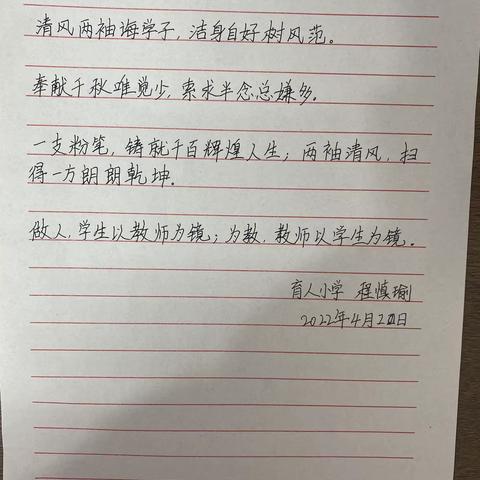 清风两袖诲学子，洁身自好树风范。
奉献千秋唯觉少，索求半念总嫌多。
一支粉笔，铸就千百辉煌人生；两袖清风，扫
得一方朗朗乾坤。
做人，学生以教师为镜；为教，教师以学生为镜。
育人小学 程慎瑜
2022年4月20日